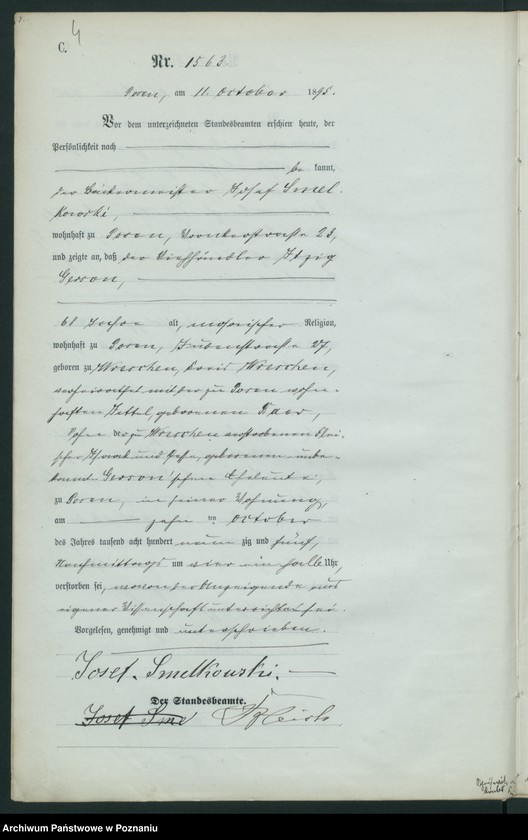 C. 4
Nr. 1563.
Posen, am 11. October 1895.
Vor dem unterzeichneten Standesbeamten erschien heute, der
Persönlichkeit nach
be kannt,
der Bäckermeister Josef Smel-
kowski,
wohnhaft zu Posen, Vronkerstraße 23,
und zeigte an, daß der Viehhändler Itzig
Gerson,
61 Jahre alt, mosaischer Religion,
wohnhaft zu Posen, Judenstraße 27,
geboren zu Wreschen, Kreis Wreschen,
verheirathet mit der zu Posen wohn-
haften Jettel, geborenen
Sohn der zu Wreschen verstorbenen
und geborenen unbe-
kannt Gerson'schen Eheleute,
zu Posen, in seiner Wohnung,
am zehn ten October
des Jahres tausend acht hundert neun zig und fünf,
Nachmittags um vier ein halb Uhr,
verstorben sei, wovon der Anzeigende aus
eigener Wissenschaft unterrichtet sei.
Vorgelesen, genehmigt und unterschrieben.
Josef Smelkowski.
Der Standesbeamte.
Josef Sme
Archiwum Państwowe w Poznaniu